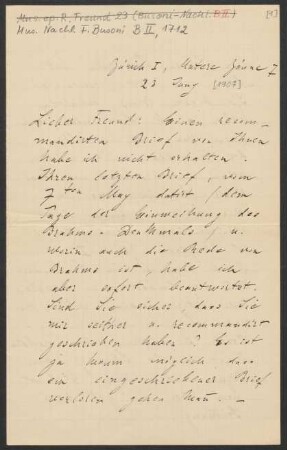 Mus. ep. R. Freund 23 (Busoni-Nachl. B II)
[1]
Mus. Nachl. F. Busoni B II, 1712
Zürich I, Untere Zäune 7
23 Juny [1907]
Lieber Freund: Einen recom-
mandirten Brief von Ihnen
habe ich nicht erhalten.
Ihren letzten Brief, vom
7ten May datirt (dem
Tage der Einweihung des
Brahms-Denkmals, u.
worin auch die Rede von
Brahms ist, habe ich
aber sofort beantwortet.
Sind Sie sicher, dass Sie
mir seither u. recommandirt
geschrieben haben? Es ist
ja kaum möglich dass
ein eingeschriebener Brief
verloren gehen kann. –